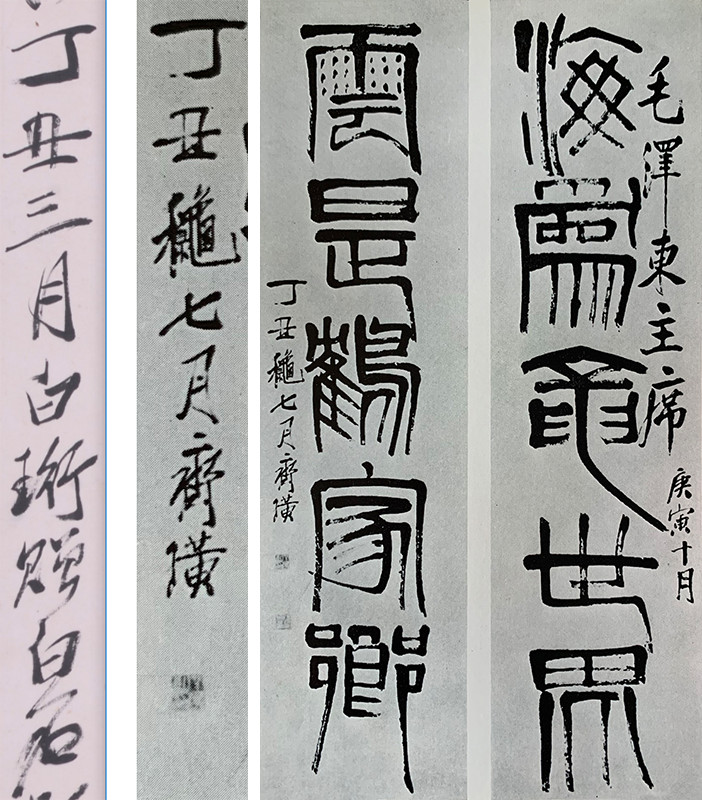 毛澤東主席
庚寅十月
海爲龍世界
雲是鶴家鄉
丁丑龝七月齊璜
丁丑龝七月齊璜
丁丑三月白珩贈白石